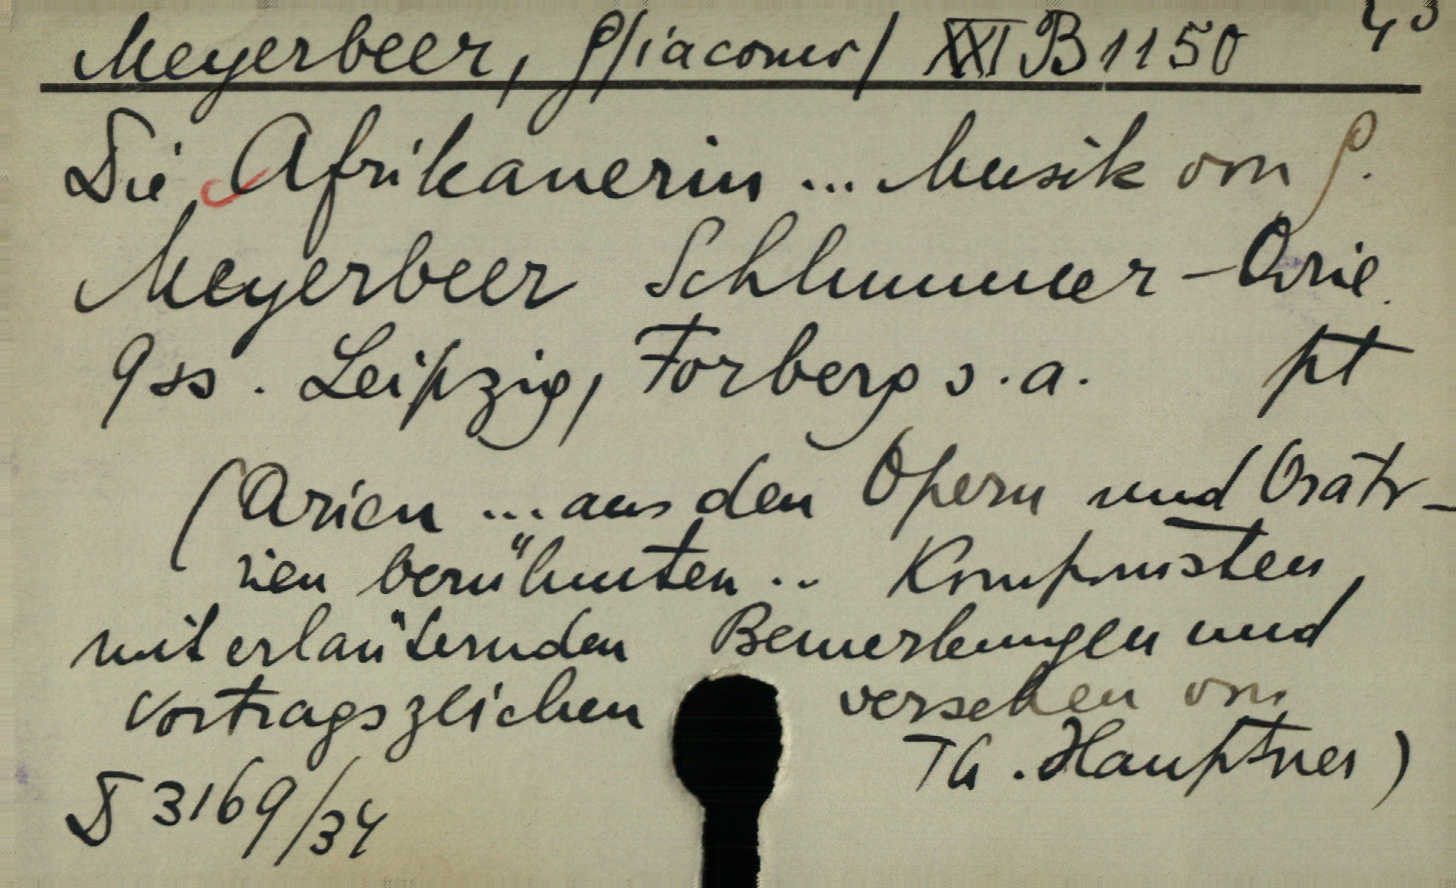 Meyerbeer, G/iacomo/ XXI B 1150
Die Afrikanerin ... Musik von G.
Meyerbeer Schlummer-Arie.
9 ss. Leipzig, Forberg s.a. pt
(Arien ... aus den Opern und Orato-
rien berühmten .. Komponisten,
mit erläuternden Bemerkungen und
Vortragszeichen versehen von
Th. Hauptner)
D 3169/34